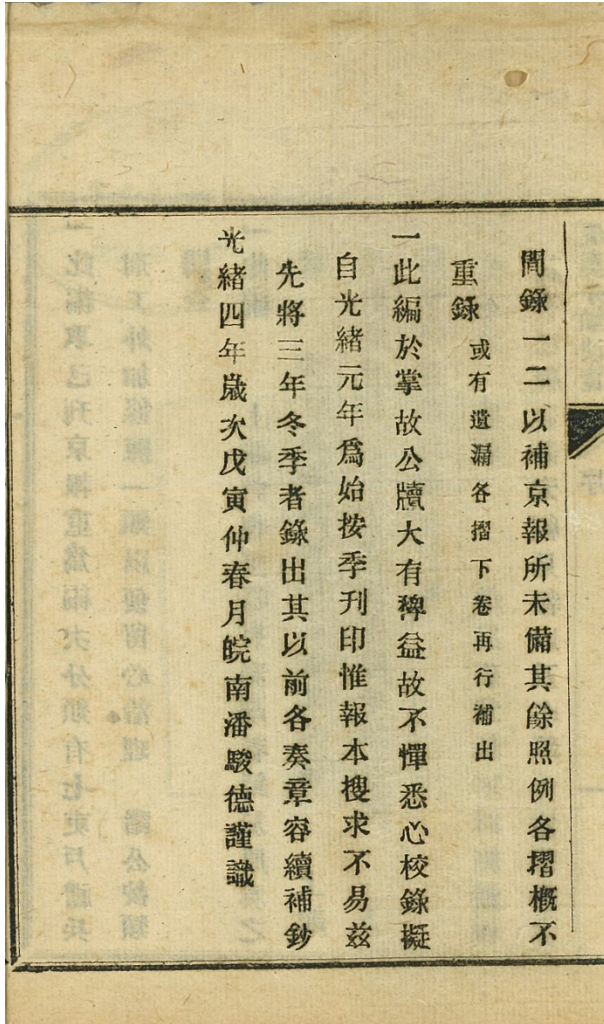 間錄一二以補京報所未備其餘照例各摺概不
重錄或有遺漏各摺下卷再行補出
一此編於掌故公牘大有稗益故不憚悉心校錄擬
自光緒元年爲始按季刊印惟報本搜求不易茲
先將三年冬季者錄出其以前各奏章容續補鈔
光緒四年歲次戊寅仲春月皖南潘駿德謹識